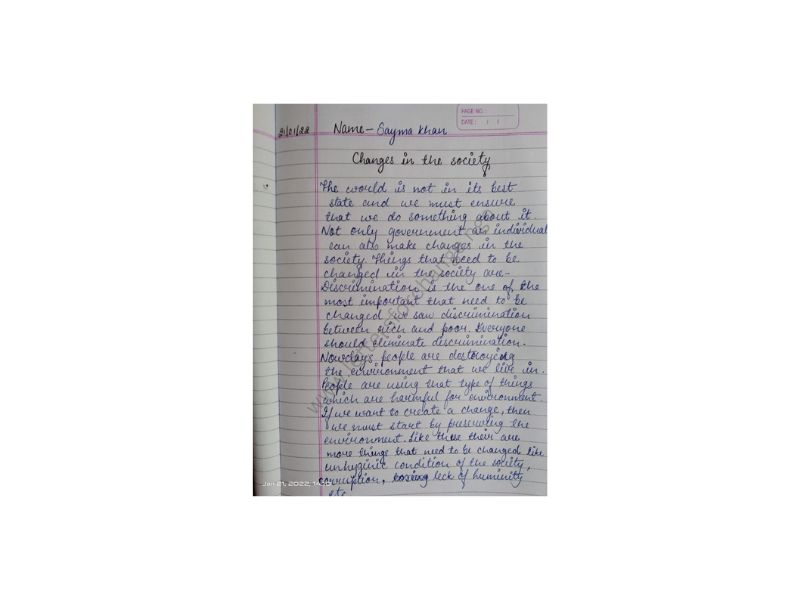 PAGE NO.:
DATE: / /
21/01/22 Name- Sayma khan
Changes in the society
The world is not in its best
state and we must ensure
that we do something about it.
Not only government an individual
can also make changes in the
society. Things that need to be
changed in the society are-
Discrimination is the one of the
most important that need to be
changed we saw discrimination
between rich and poor. Everyone
should eliminate discrimination.
Nowdays people are destroying
the environment that we live in.
People are using that type of things
which are harmful for environment
If we want to create a change, then
we must start by preserving the
environment. Like these their are
more things that need to be changed like
unhyginic condition of the society,
corruption, lack of huminity
etc
Jan 21, 2022, 14: